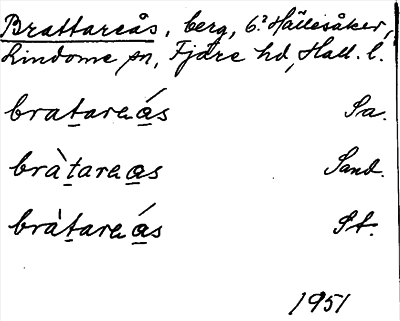 Brattareås, berg, 6.? Hällesåker,
Lindome sn, Fjäre hd, Hall. l.
bratareás Sa.
bràtareas Sand.
bràtareás St.
1951